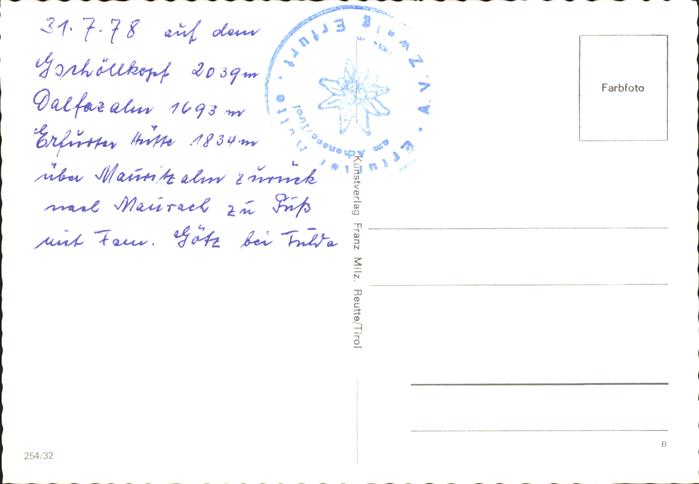 31.7.78 auf dem
Gschöllkopf 2039 m
Dalfazalm 1693 m
Erfurter Hütte 1834 m
über Mauritzalm zurück
nach Maurach zu Fuß
mit Fam. Götz bei Fulda
A.V.Z. Zweig Erfurt.
Erfurter Hütte
am Achensee/Tirol
Farbfoto
Kunstverlag Franz Milz, Reutte/Tirol
254/32
B